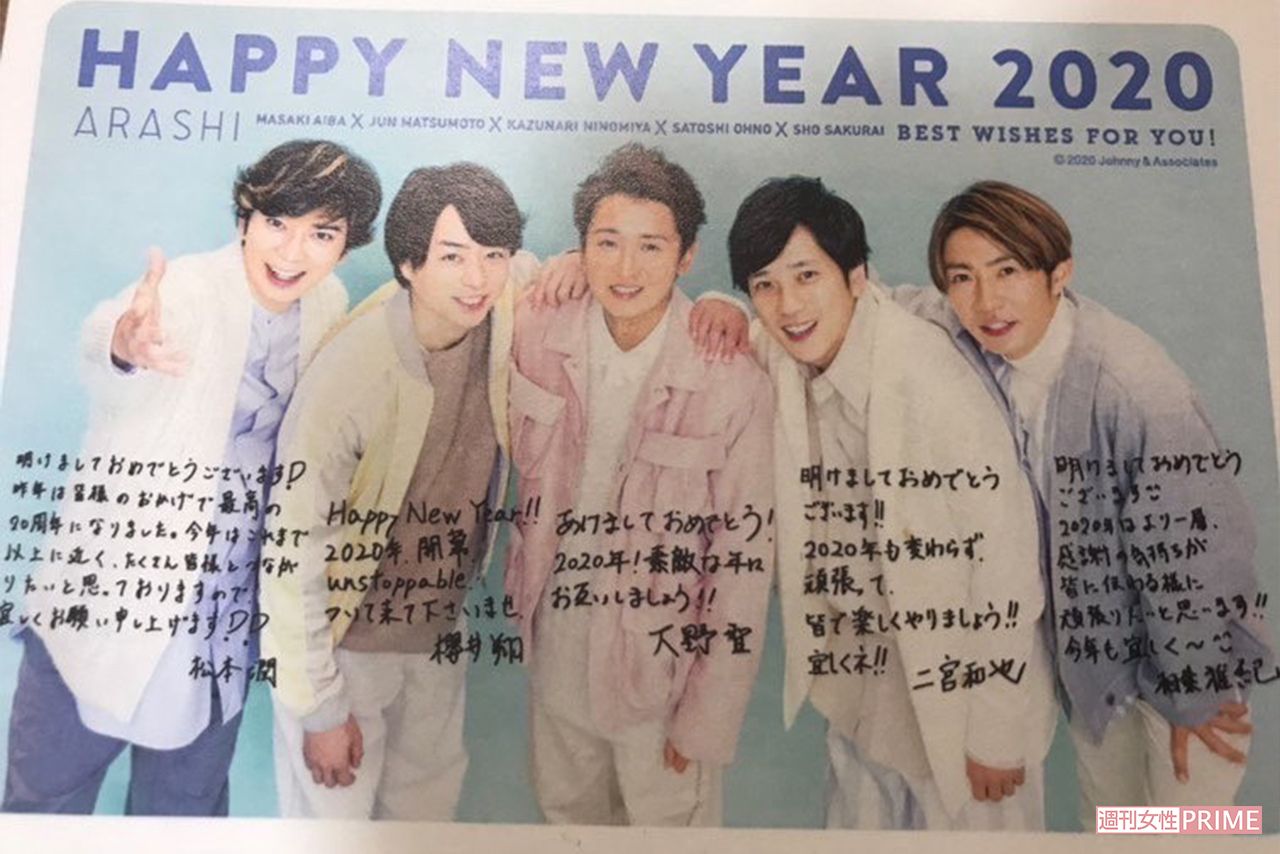 HAPPY NEW YEAR 2020
ARASHI MASAKI AIBA X JUN MATSUMOTO X KAZUNARI NINOMIYA X SATOSHI OHNO X SHO SAKURAI BEST WISHES FOR YOU!
©2020 Johnny & Associates
明けましておめでとうございます!!
昨年は皆様のおかげで最高の
20周年になりました。今年はこれまで
以上に近く、たくさん皆様とつなが
りたいと思っておりますので
宜しくお願い申し上げます!!
松本潤
Happy New Year!!
2020年、開幕。
unstoppable..
ついて来て下さいませ。
櫻井翔
あけましておめでとう!
2020年!素敵な年に
お互いしましょう!!
大野智
明けましておめでとう
ございます!!
2020年も変わらず、
頑張って、
皆で楽しくやりましょう!!
宜しくネ!!
二宮和也
明けましておめでとう
ございます
2020年はより一層、
感謝の気持ちが
皆に伝わる様に
頑張りたいと思います!!
今年も宜しく〜
相葉雅紀
週刊女性PRIME